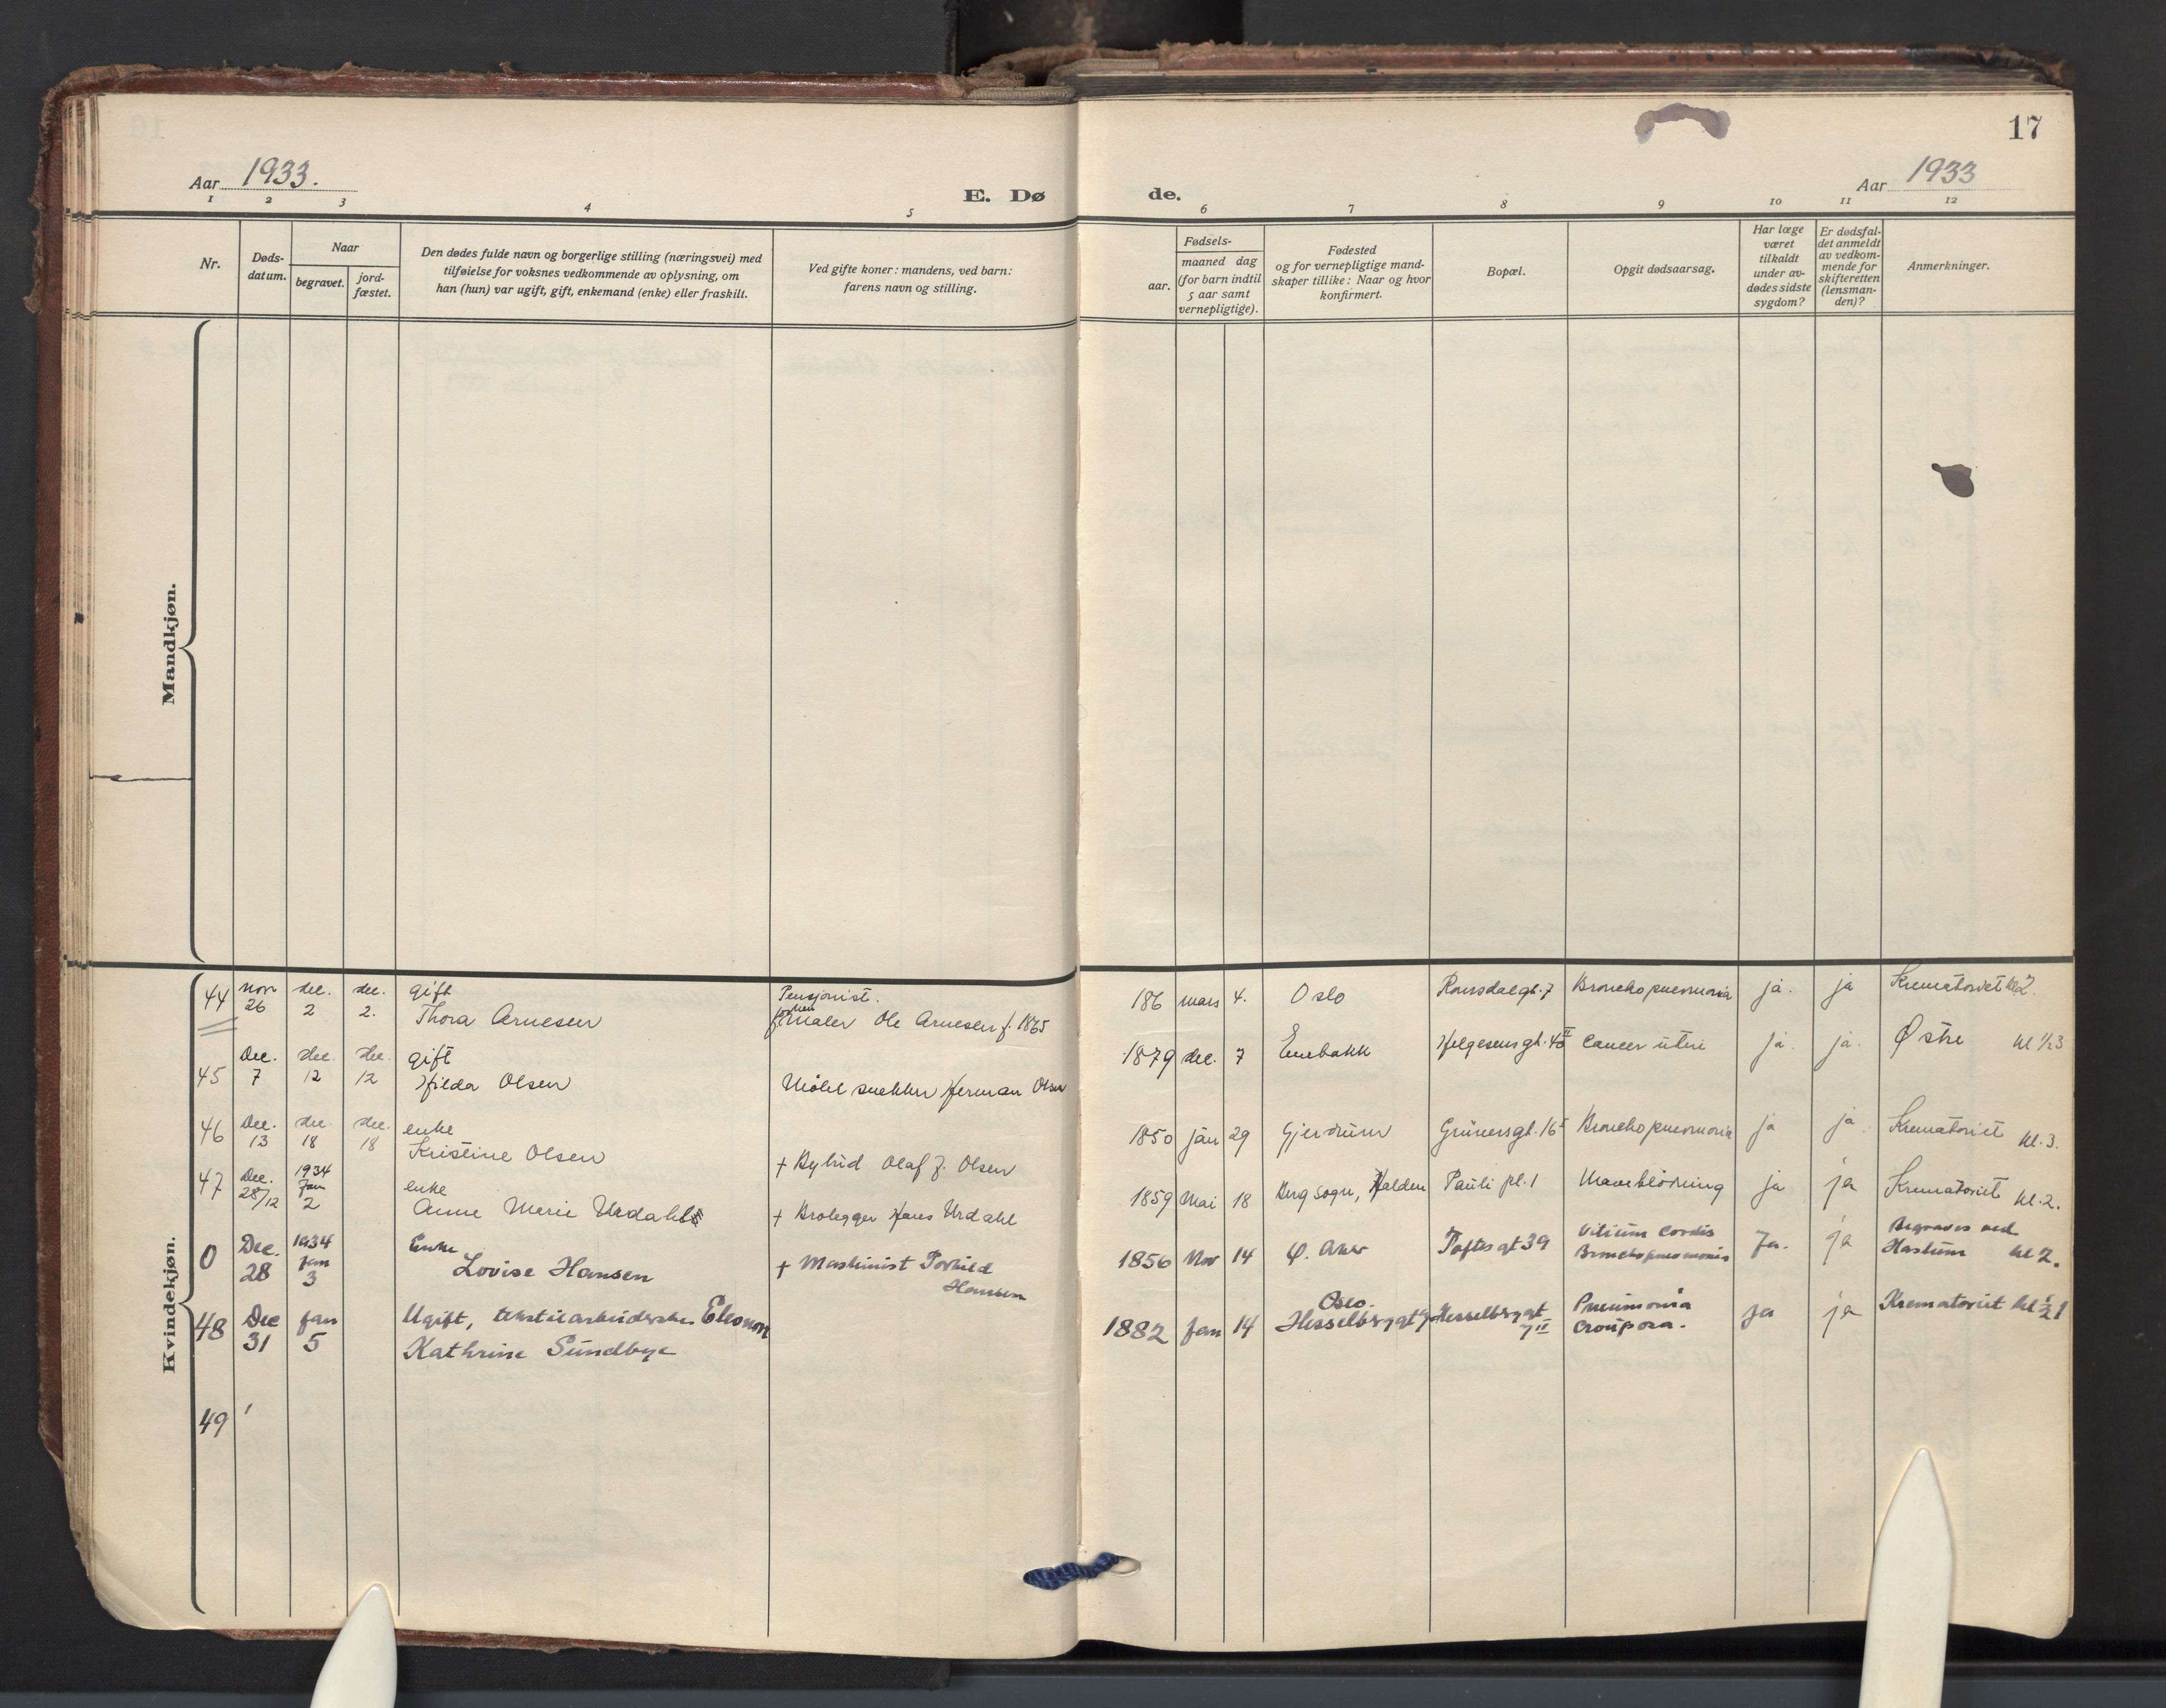 17
Aar 1933.
E. Dø
de.
Aar 1933
1 2 3 4 5 6 7 8 9 10 11 12
Nr.
Døds-
datum.
Naar
begravet.
jord-
fæstet.
Den dødes fulde navn og borgerlige stilling (næringsvei) med
tilføielse for voksnes vedkommende av oplysning, om
han (hun) var ugift, gift, enkemand (enke) eller fraskilt.
Ved gifte koner: mandens, ved barn:
farens navn og stilling.
Fødsels-
aar.
maaned dag
(for barn indtil
5 aar samt
vernepligtige).
Fødested
og for vernepligtige mand-
skaper tillike: Naar og hvor
konfirmert.
Bopæl.
Opgit dødsaarsag.
Har læge
været
tilkaldt
under av-
dødes sidste
sygdom?
Er dødsfal-
det anmeldt
av vedkom-
mende for
skifteretten
(lensman-
den)?
Anmerkninger.
Mandkjøn.
Kvindekjøn.
44 nov 26 dec. 2 dec. 2. gift
Thora Arnesen
Pensjonist.
maler Ole Arnesen f. 1865
186 mars 4. Oslo Romsdalsgt. 7 Bronchopneumonia ja. ja Krematoriet kl 2.
45 Dec. 7 dec. 12 dec. 12 gift
Hilda Olsen
Møbelsnekker Herman Olsen
1879 dec. 7 Enebakk Helgesensgt. 40 II Cancer uteri ja. ja. Østre kl 1/2 3
46 Dec. 13 dec. 18 dec. 18 enke
Kristine Olsen
+ Bybud Olaf J. Olsen
1850 jan 29 Gjerdrum Grünersgt. 16 Bronchopneumonia ja ja Krematoriet kl. 3.
47 Dec. 28/12 1934 Jan 2 enke
Anne Marie Urdahl
+ Brolegger Hans Urdahl
1859 Mai 18 Berg sogn, Halden Pauli pl. 1 Maveblødning ja ja Krematoriet kl. 2.
0 Dec. 28 1934 Jan 3 Enke
Lovise Hansen
+ Maskinist Torkild
Hansen
1856 Nov 14 Ø. Aker Toftesgt 39 Vitium cordis
Bronchopneumonia Ja. ja Begraves ved
Haslum kl 2.
48 Dec 31 Jan 5 Ugift, tekstilarbeiderske Eleonora
Kathrine Sundbye
1882 Jan 14 Oslo.
Hesselbergsgt 7 Hesselbergsgt
7 II Pneumonia
crouposa. ja ja Krematoriet kl 1/2 1
49